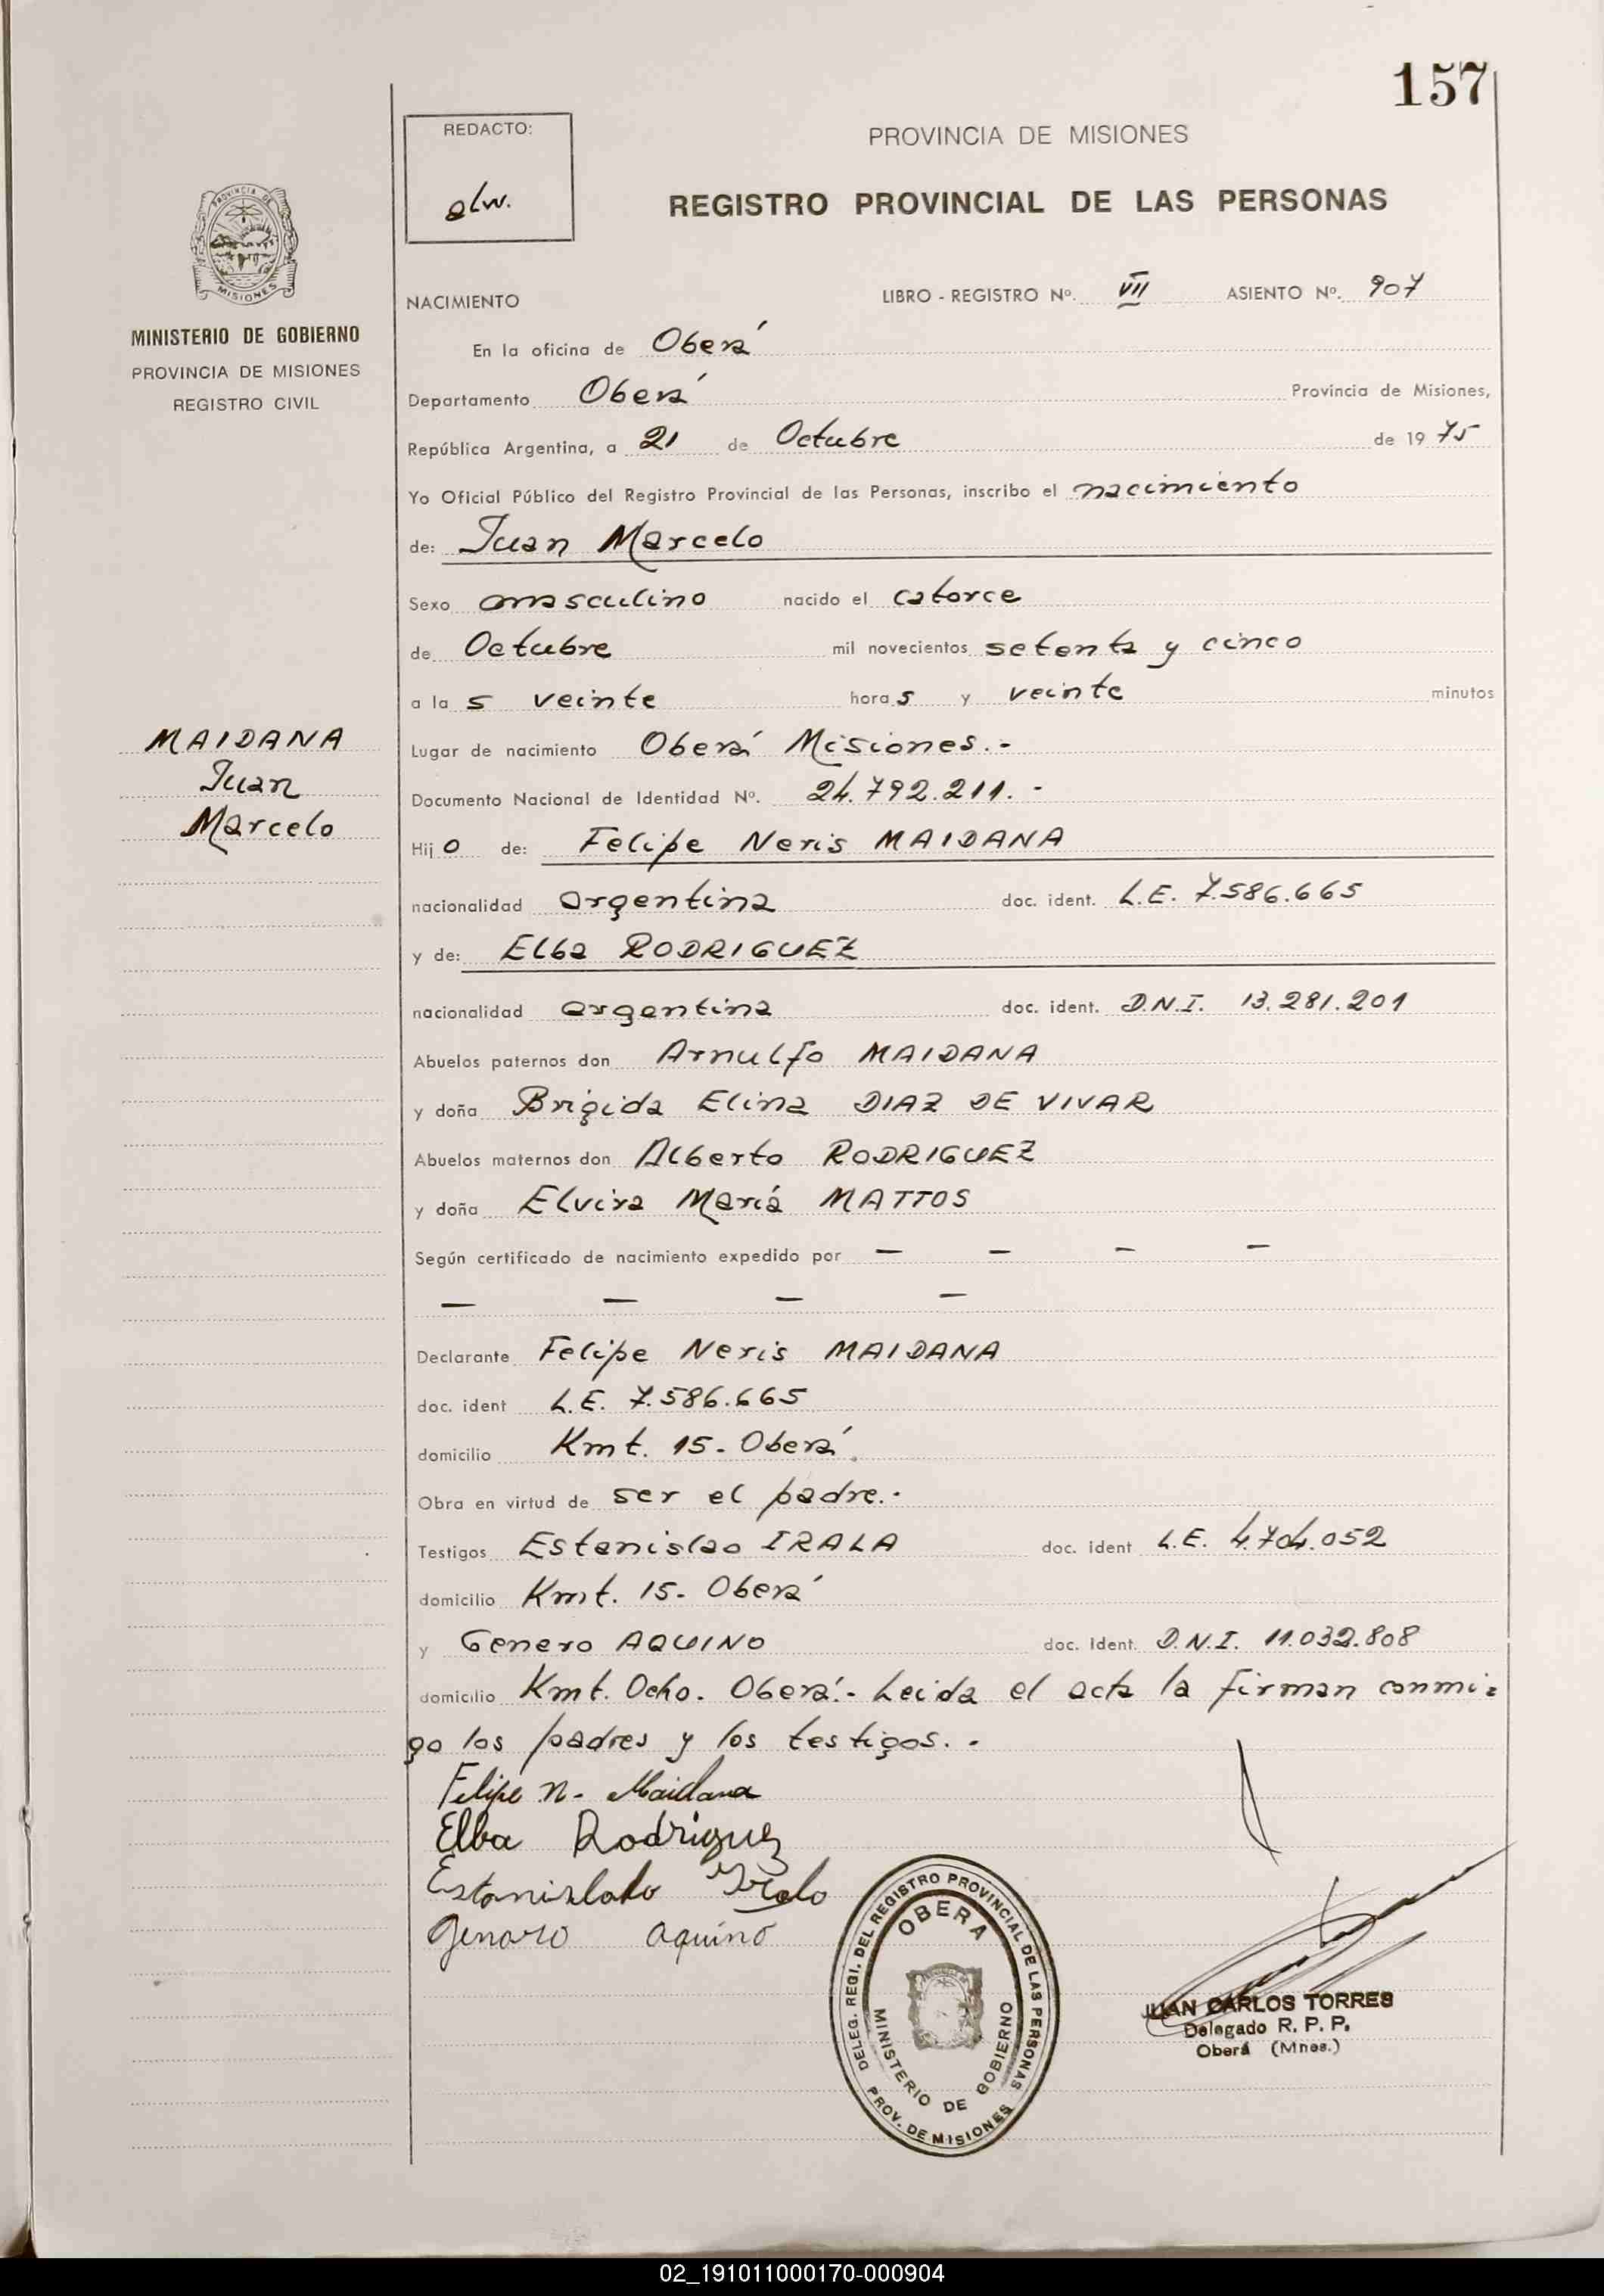 157
REDACTO:
PROVINCIA DE MISIONES
REGISTRO PROVINCIAL DE LAS PERSONAS
PROVINCIA DE
MISIONES
MINISTERIO DE GOBIERNO
PROVINCIA DE MISIONES
REGISTRO CIVIL
NACIMIENTO LIBRO - REGISTRO Nº. VII ASIENTO Nº. 907
En la oficina de Oberá
Departamento Oberá Provincia de Misiones,
República Argentina, a 21 de Octubre de 1975
Yo Oficial Público del Registro Provincial de las Personas, inscribo el nacimiento
de: Juan Marcelo
Sexo masculino nacido el catorce
de Octubre mil novecientos setenta y cinco
a las veinte horas y veinte minutos
MAIDANA
Juan
Marcelo
Lugar de nacimiento Oberá Misiones.-
Documento Nacional de Identidad Nº. 24.792.211.-
Hijo de: Felipe Neris MAIDANA
nacionalidad argentina doc. ident. L.E. 7.586.665
y de: Elba RODRIGUEZ
nacionalidad argentina doc. ident. D.N.I. 13.281.201
Abuelos paternos don Arnulfo MAIDANA
y doña Brigida Elina DIAZ DE VIVAR
Abuelos maternos don Alberto RODRIGUEZ
y doña Elvira María MATTOS
Según certificado de nacimiento expedido por — — — —
— — — —
Declarante Felipe Neris MAIDANA
doc. ident L.E. 7.586.665
domicilio Kmt. 15- Oberá
Obra en virtud de ser el padre.-
Testigos Estanislao IRALA doc. ident L.E. 4.704.052
domicilio Kmt. 15- Oberá
y Genero AQUINO doc. Ident. D.N.I. 11.032.808
domicilio Kmt. Ocho. Oberá.- Leida el acta la firman conmi=
go los padres y los testigos.-
Felipe N. Maidana
Elba Rodriguez
Genaro Aquino
DELEG. REGI. DEL REGISTRO PROVINCIAL DE LAS PERSONAS
OBERA
MINISTERIO DE GOBIERNO
PROV. DE MISIONES
JUAN CARLOS TORRES
Delegado R. P. P.
Oberá (Mnes.)
02_191011000170-000904